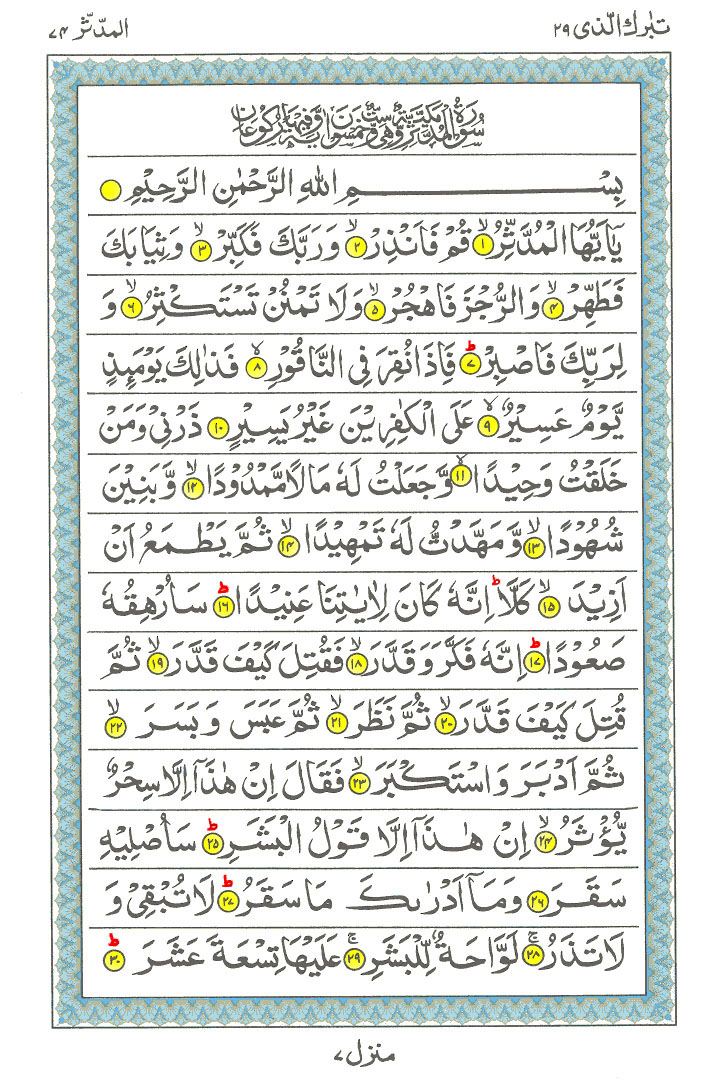 تبٰرك الّذى ٢٩
المدّثّر ٧٤
سُوْرَةُ الْمُدَّثِّرِ مَكِّيَّةٌ وَّهِىَ سِتٌّ وَّخَمْسُوْنَ اٰيَةً وَّفِيْهَا رُكُوْعَانِ
بِسْمِ اللّٰهِ الرَّحْمٰنِ الرَّحِيْمِ
يٰۤاَيُّهَا الْمُدَّثِّرُ ۙ‏﴿۱﴾ قُمْ فَاَنْذِرْ ۙ‏﴿۲﴾ وَرَبَّكَ فَكَبِّرْ ۙ‏﴿۳﴾ وَثِيَابَكَ
فَطَهِّرْ ۙ‏﴿۴﴾ وَالرُّجْزَ فَاهْجُرْ ۙ‏﴿۵﴾ وَلَا تَمْنُنْ تَسْتَكْثِرُ ۙ‏﴿۶﴾ وَ
لِرَبِّكَ فَاصْبِرْ ؕ‏﴿۷﴾ فَاِذَا نُقِرَ فِى النَّاقُوْرِ ۙ‏﴿۸﴾ فَذٰلِكَ يَوْمَئِذٍ
يَّوْمٌ عَسِيْرٌ ۙ‏﴿۹﴾ عَلَى الْكٰفِرِيْنَ غَيْرُ يَسِيْرٍ ‏﴿۱۰﴾ ذَرْنِىْ وَمَنْ
خَلَقْتُ وَحِيْدًا ۙ‏﴿۱۱﴾ وَّجَعَلْتُ لَهٗ مَالًا مَّمْدُوْدًا ۙ‏﴿۱۲﴾ وَّبَنِيْنَ
شُهُوْدًا ۙ‏﴿۱۳﴾ وَّمَهَّدْتُّ لَهٗ تَمْهِيْدًا ۙ‏﴿۱۴﴾ ثُمَّ يَطْمَعُ اَنْ
اَزِيْدَ ۙ‏﴿۱۵﴾ كَلَّا ؕ اِنَّهٗ كَانَ لِاٰيٰتِنَا عَنِيْدًا ؕ‏﴿۱۶﴾ سَاُرْهِقُهٗ
صَعُوْدًا ؕ‏﴿۱۷﴾ اِنَّهٗ فَكَّرَ وَقَدَّرَ ۙ‏﴿۱۸﴾ فَقُتِلَ كَيْفَ قَدَّرَ ۙ‏﴿۱۹﴾ ثُمَّ
قُتِلَ كَيْفَ قَدَّرَ ۙ‏﴿۲۰﴾ ثُمَّ نَظَرَ ۙ‏﴿۲۱﴾ ثُمَّ عَبَسَ وَبَسَرَ ۙ‏﴿۲۲﴾
ثُمَّ اَدْبَرَ وَاسْتَكْبَرَ ۙ‏﴿۲۳﴾ فَقَالَ اِنْ هٰذَاۤ اِلَّا سِحْرٌ
يُّؤْثَرُ ۙ‏﴿۲۴﴾ اِنْ هٰذَاۤ اِلَّا قَوْلُ الْبَشَرِ ؕ‏﴿۲۵﴾ سَاُصْلِيْهِ
سَقَرَ ‏﴿۲۶﴾ وَمَاۤ اَدْرٰىكَ مَا سَقَرُ ؕ‏﴿۲۷﴾ لَا تُبْقِىْ وَ
لَا تَذَرُ ۚ‏﴿۲۸﴾ لَوَّاحَةٌ لِّلْبَشَرِ ۚ‏﴿۲۹﴾ عَلَيْهَا تِسْعَةَ عَشَرَ ؕ‏﴿۳۰﴾
منزل ٧